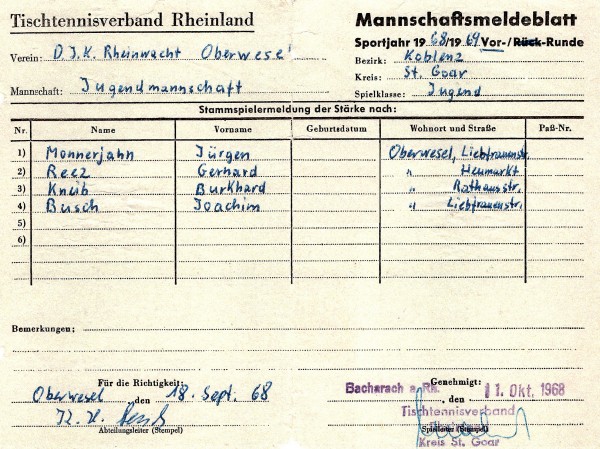 Tischtennisverband Rheinland
Mannschaftsmeldeblatt
Sportjahr 1968/1969 Vor-/Rück-Runde
Verein: D.J.K. Rheinwacht Oberwesel
Bezirk: Koblenz
Kreis: St. Goar
Mannschaft: Jugendmannschaft
Spielklasse: Jugend
Stammspielermeldung der Stärke nach:
Nr. Name Vorname Geburtsdatum Wohnort und Straße Paß-Nr.
1) Monnerjahn Jürgen Oberwesel, Liebfrauenstr.
2) Reez Gerhard " Heumarkt
3) Kneib Burkhard Rathausstr.
4) Busch Joachim " Liebfrauenstr.
5)
6)
Bemerkungen:
Für die Richtigkeit:
Oberwesel, den 18. Sept. 68
K. H.
Abteilungsleiter (Stempel)
Genehmigt:
Bacharach a. Rh., den 11. Okt. 1968
Tischtennisverband
(Stempel)
Kreis St. Goar